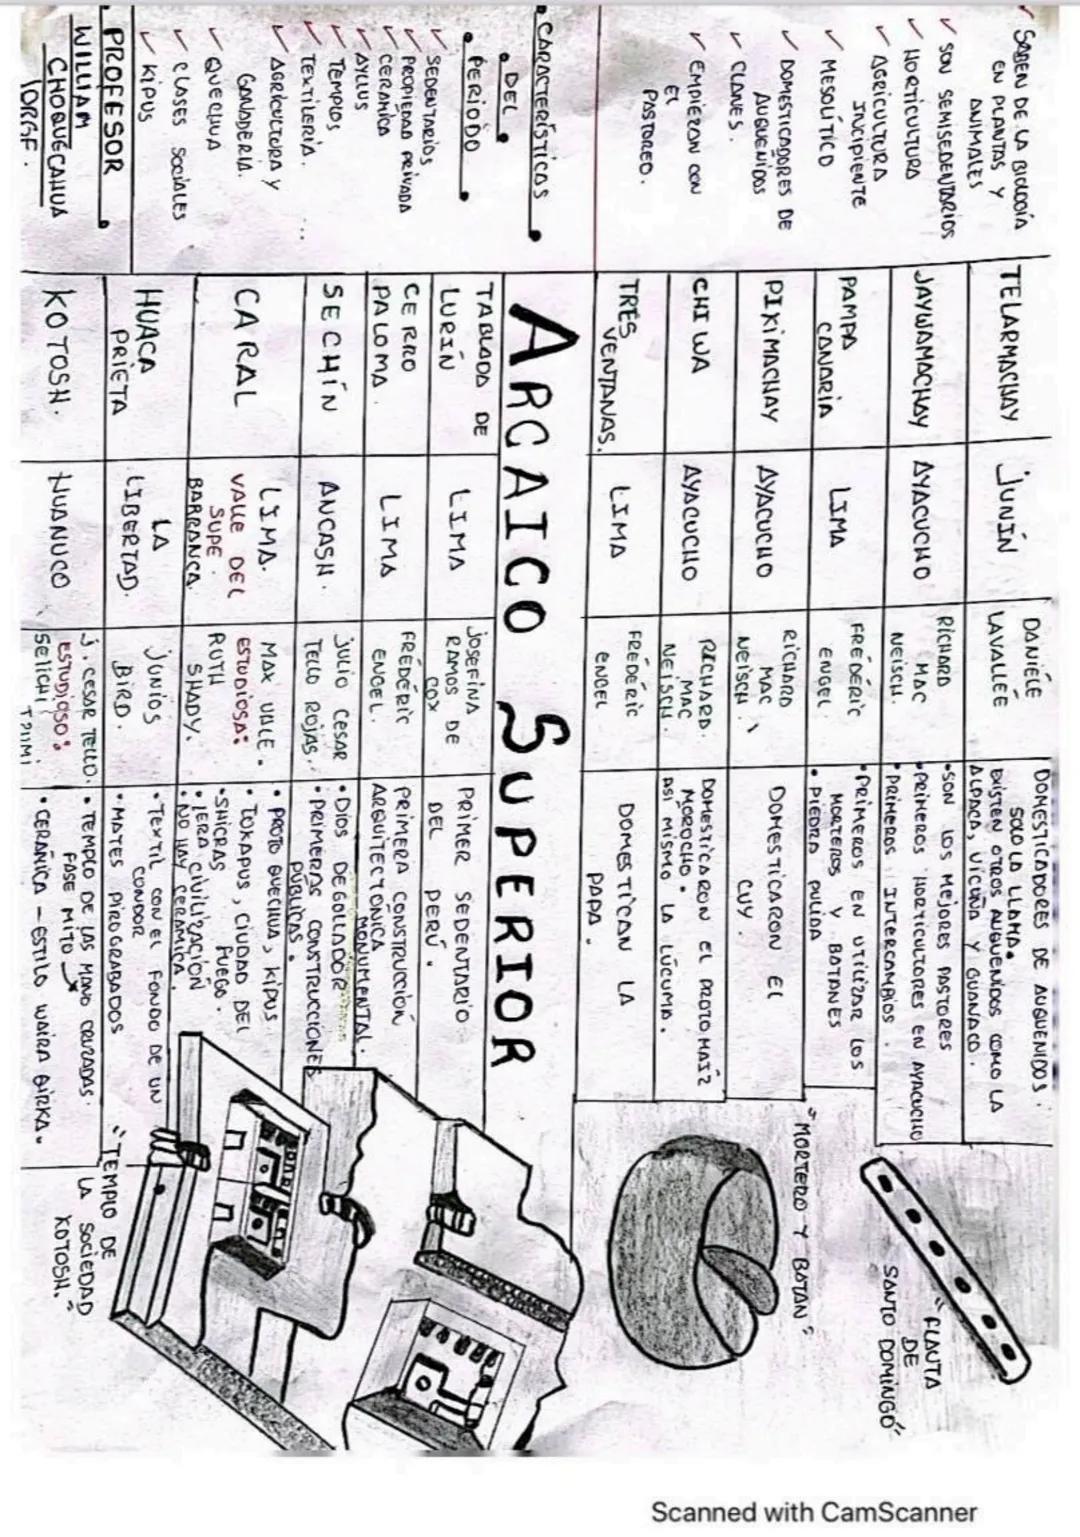 ✓ SABEN DE LA BIOLOGÍA
EN PLANTAS Y
ANIMALES
✓ SON SEMISEDENTARIOS
✓ HORTICULTURA
✓ AGRICULTURA
INCIPIENTE
✓ MESOLÍTICO
✓ DOMESTICADORES DE
AUQUENIDOS
✓ CLANES.
✓ EMPIERON CON
EL
PASTOREO.
TELARMACHAY
JUNÍN
DANIÉLE
LAVALLÉE
DOMESTICADORES DE AUQUENIDOS.
SOLO LA LLAMA.
EXISTEN OTROS AUQUENIDOS COMO LA
ALPACA, VICUÑA Y GUANACO.
JAYWAMACHAY
AYACUCHO
RICHARD
MAC
NEISCH.
• SON LOS MEJORES PASTORES
• PRIMEROS HORTICULTORES EN AYACUCHO
• PRIMEROS INTERCAMBIOS.
PAMPA
CANARIA
LIMA
FRÉDÉRIC
ENGEL
• PRIMEROS EN UTILIZAR LOS
MORTEROS Y BATANES
• PIEDRA PULIDA
PIKIMACHAY
AYACUCHO
RICHARD
MAC
NEISCH.
DOMESTICARON EL
CUY.
CHIWA
AYACUCHO
RICHARD.
MAC
NEISCH.
DOMESTICARON EL PROTO MAÍZ
MOROCHO.
ASI MISMO LA LÚCUMA.
TRES
VENTANAS.
LIMA
FRÉDÉRIC
ENGEL
DOMESTICAN LA
PAPA.
"FLAUTA
DE
SANTO DOMINGO"
"MORTERO Y BATAN"
ARCAICO SUPERIOR
• CARACTERÍSTICAS
• DEL
• PERIODO
✓ SEDENTARIOS
✓ PROPIEDAD PRIVADA
✓ CERAMICA
✓ AYLLUS
✓ TEMPLOS
✓ TEXTILERIA. ...
✓ AGRICULTURA Y
GANADERIA.
✓ QUECHUA
✓ CLASES SOCIALES
✓ KIPUS
TABLADA DE
LURÍN
LIMA
JOSEFINA
RAMOS DE
COX
PRIMER SEDENTARIO
DEL PERÚ.
CERRO
PALOMA.
LIMA
FRÉDÉRIC
ENGEL.
PRIMERA CONSTRUCCIÓN
ARQUITECTÓNICA
MONUMENTAL.
SECHÍN
ANCASH.
JULIO CESAR
TELLO ROJAS.
• DIOS DEGOLLADOR
• PRIMERAS CONSTRUCCIONES
PÚBLICAS.
CARAL
LIMA.
VALLE DEL
SUPE.
BARRANCA.
MAX UHLE.
ESTUDIOSA:
RUTH
SHADY.
• PROTO QUECHUA, KIPUS
• TOKAPUS, CIUDAD DEL
FUEGO.
• SHICRAS
• 1ERA CIVILIZACIÓN
• NO HAY CERAMICA.
HUACA
PRIETA
LA
LIBERTAD.
JUNIOS
BIRD.
• TEXTIL CON EL FONDO DE UN
CONDOR
• MATES PIROGRABADOS
KOTOSH.
HUANUCO
J. CESAR TELLO.
ESTUDIOSO:
SEIICHI
• TEMPLO DE LAS MANO CRUZADAS.
FASE MITO
• CERAMICA - ESTILO WAIRA GIRKA.
"TEMPLO DE
LA SOCIEDAD
KOTOSH."
PROFESOR
WILLIAM
CHOQUECAHUA
JORGE.
Scanned with CamScanner